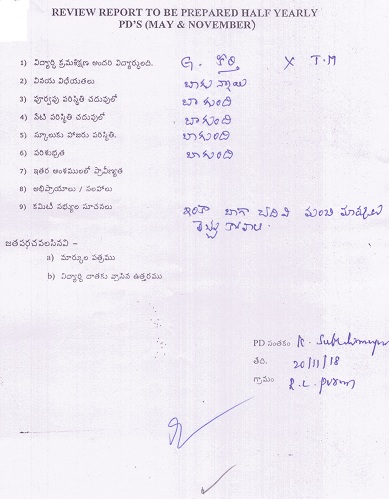 REVIEW REPORT TO BE PREPARED HALF YEARLY
PD'S (MAY & NOVEMBER)
1) విద్యార్థి క్రమశిక్షణ అందరి విద్యార్థులది. G. కీర్తి X T.M
2) వినయ విధేయతలు బాగున్నాయి
3) పూర్వపు పరిస్థితి చదువులో బాగుంది
4) నేటి పరిస్థితి చదువులో బాగుంది
5) స్కూలుకు హాజరు పరిస్థితి. బాగుంది
6) పరిశుభ్రత బాగుంది
7) ఇతర అంశములలో ప్రావీణ్యత
8) అభిప్రాయాలు / సలహాలు
9) కమిటీ సభ్యుల సూచనలు ఇంకా బాగా చదివి మంచి మార్కులు
తెచ్చుకోవాలి.
జతపర్చవలసినవి –
a) మార్కుల పత్రము
b) విద్యార్థి దాతకు వ్రాసిన ఉత్తరము
PD సంతకం K.
తేది. 20/11/18
గ్రామం R.L. puram